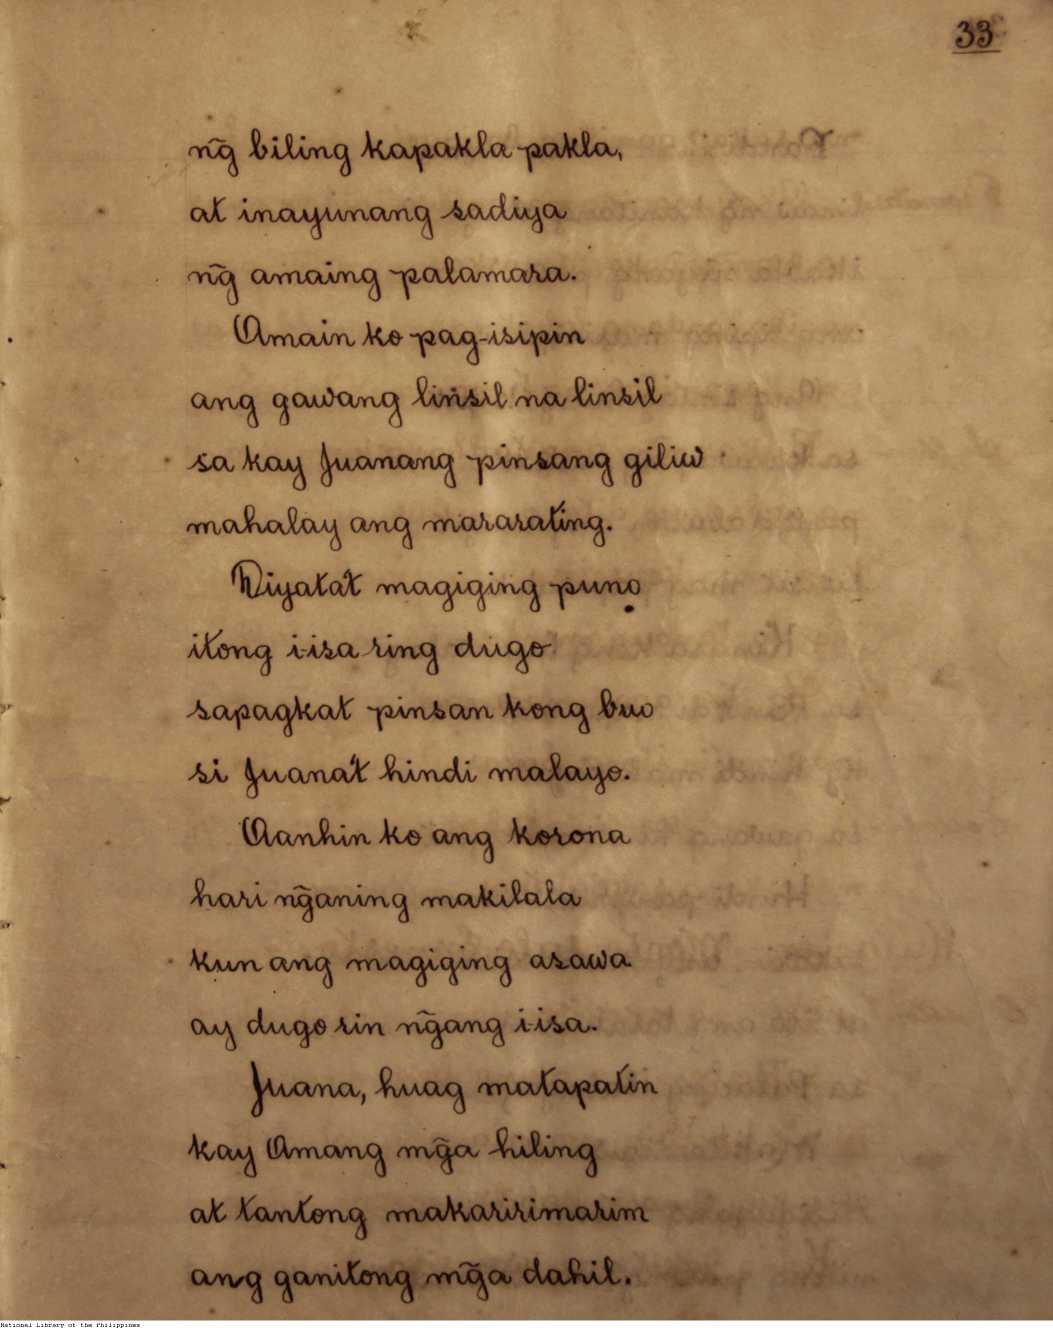 33
ng̃ biling kapakla-pakla,
at inayunang sadiya
ng̃ amaing palamara.
Amain ko pag-isipin
ang gawang linsil na linsil
sa kay Juanang pinsang giliw
mahalay ang mararating.
Diyata't magiging puno
itong i-isa ring dugo
sapagkat pinsan kong buo
si Juana't hindi malayo.
Aanhin ko ang korona
hari ng̃aning makilala
kun ang magiging asawa
ay dugo rin ng̃ang i-isa.
Juana, huag matapatin
kay Amang mg̃a hiling
at tantong makaririmarim
ang ganitong mg̃a dahil.
National Library of the Philippines